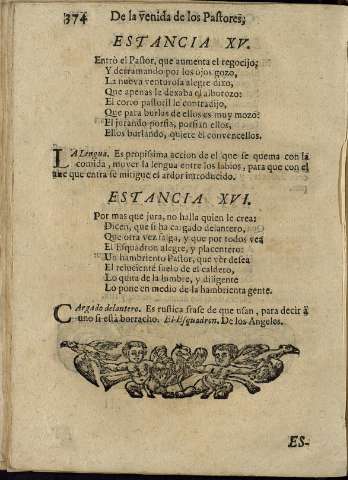 374 De la venida de los Pastores,
ESTANCIA XV.
Entrò el Pastor, que aumenta el regocijo;
Y derramando por los ojos gozo,
La nueva venturosa alegre dixo,
Que apenas le dexaba el alborozo:
El coro pastoril le contradijo,
Que para burlas de ellos es muy mozo:
El jurando porfia, porfian ellos,
Ellos burlando, quiere èl convencellos.
LA Lengua. Es propissima accion de el que se quema con la
comida, mover la lengua entre los labios, para que con el
aire que entra se mitigue el ardor introducido.
ESTANCIA XVI.
Por mas que jura, no halla quien le crea:
Dicen, que si ha cargado delantero,
Que otra vez salga, y que por todos vea
El Esquadron alegre, y placentero:
Un hambriento Pastor, que vèr desea
El reluciente suelo de el caldero,
Lo quita de la lumbre, y diligente
Lo pone en medio de la hambrienta gente.
CArgado delantero. Es rustica frase de que usan, para decir à
uno si està borracho. El Esquadron. De los Angeles.
ES-